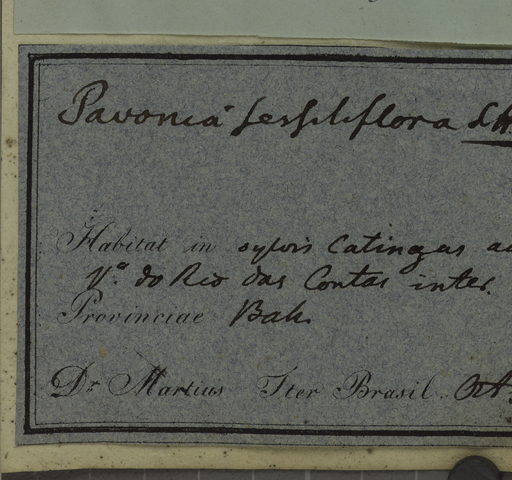 Pavonia sessiliflora
Habitat in sylvis Catingas
V.ª do Rio das Contas inter.
Provinciae Bah.
Dr Martius Iter Brasil.